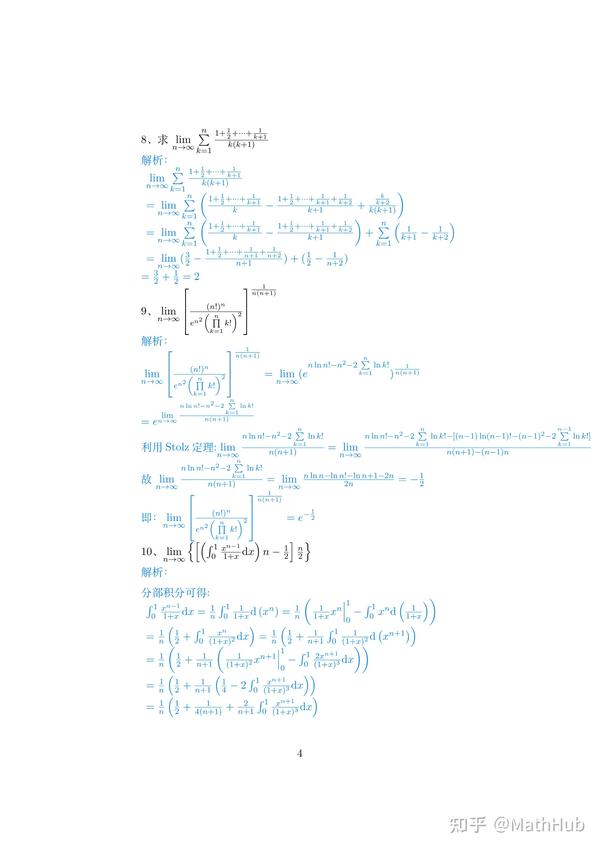 8、求 $\lim\limits_{n\to\infty}\sum\limits_{k=1}^{n}\frac{1+\frac{1}{2}+\cdots+\frac{1}{k+1}}{k(k+1)}$
解析:
$\lim\limits_{n\to\infty}\sum\limits_{k=1}^{n}\frac{1+\frac{1}{2}+\cdots+\frac{1}{k+1}}{k(k+1)}$
$=\lim\limits_{n\to\infty}\sum\limits_{k=1}^{n}\left(\frac{1+\frac{1}{2}+\cdots+\frac{1}{k+1}}{k}-\frac{1+\frac{1}{2}+\cdots+\frac{1}{k+1}+\frac{1}{k+2}}{k+1}+\frac{\frac{k}{k+2}}{k(k+1)}\right)$
$=\lim\limits_{n\to\infty}\sum\limits_{k=1}^{n}\left(\frac{1+\frac{1}{2}+\cdots+\frac{1}{k+1}}{k}-\frac{1+\frac{1}{2}+\cdots+\frac{1}{k+1}+\frac{1}{k+2}}{k+1}\right)+\sum\limits_{k=1}^{n}\left(\frac{1}{k+1}-\frac{1}{k+2}\right)$
$=\lim\limits_{n\to\infty}(\frac{3}{2}-\frac{1+\frac{1}{2}+\cdots+\frac{1}{n+1}+\frac{1}{n+2}}{n+1})+(\frac{1}{2}-\frac{1}{n+2})$
$=\frac{3}{2}+\frac{1}{2}=2$
9、$\lim\limits_{n\to\infty}\left[\frac{(n!)^n}{e^{n^2}\left(\prod\limits_{k=1}^{n}k!\right)^2}\right]^{\frac{1}{n(n+1)}}$
解析:
$\lim\limits_{n\to\infty}\left[\frac{(n!)^n}{e^{n^2}\left(\prod\limits_{k=1}^{n}k!\right)^2}\right]^{\frac{1}{n(n+1)}}=\lim\limits_{n\to\infty}(e^{n\ln n!-n^2-2\sum\limits_{k=1}^{n}\ln k!})^{\frac{1}{n(n+1)}}$
$=e^{\lim\limits_{n\to\infty}\frac{n\ln n!-n^2-2\sum\limits_{k=1}^{n}\ln k!}{n(n+1)}}$
利用 Stolz 定理: $\lim\limits_{n\to\infty}\frac{n\ln n!-n^2-2\sum\limits_{k=1}^{n}\ln k!}{n(n+1)}=\lim\limits_{n\to\infty}\frac{n\ln n!-n^2-2\sum\limits_{k=1}^{n}\ln k!-[(n-1)\ln(n-1)!-(n-1)^2-2\sum\limits_{k=1}^{n-1}\ln k!]}{n(n+1)-(n-1)n}$
故 $\lim\limits_{n\to\infty}\frac{n\ln n!-n^2-2\sum\limits_{k=1}^{n}\ln k!}{n(n+1)}=\lim\limits_{n\to\infty}\frac{n\ln n-\ln n!-\ln n+1-2n}{2n}=-\frac{1}{2}$
即: $\lim\limits_{n\to\infty}\left[\frac{(n!)^n}{e^{n^2}\left(\prod\limits_{k=1}^{n}k!\right)^2}\right]^{\frac{1}{n(n+1)}}=e^{-\frac{1}{2}}$
10、$\lim\limits_{n\to\infty}\left\{\left[\left(\int_0^1\frac{x^{n-1}}{1+x}\mathrm{d}x\right)n-\frac{1}{2}\right]\frac{n}{2}\right\}$
解析:
分部积分可得:
$\int_0^1\frac{x^{n-1}}{1+x}\mathrm{d}x=\frac{1}{n}\int_0^1\frac{1}{1+x}\mathrm{d}(x^n)=\frac{1}{n}\left(\left.\frac{1}{1+x}x^n\right|_0^1-\int_0^1x^n\mathrm{d}\left(\frac{1}{1+x}\right)\right)$
$=\frac{1}{n}\left(\frac{1}{2}+\int_0^1\frac{x^n}{(1+x)^2}\mathrm{d}x\right)=\frac{1}{n}\left(\frac{1}{2}+\frac{1}{n+1}\int_0^1\frac{1}{(1+x)^2}\mathrm{d}(x^{n+1})\right)$
$=\frac{1}{n}\left(\frac{1}{2}+\frac{1}{n+1}\left(\left.\frac{1}{(1+x)^2}x^{n+1}\right|_0^1-\int_0^1\frac{2x^{n+1}}{(1+x)^3}\mathrm{d}x\right)\right)$
$=\frac{1}{n}\left(\frac{1}{2}+\frac{1}{n+1}\left(\frac{1}{4}-2\int_0^1\frac{x^{n+1}}{(1+x)^3}\mathrm{d}x\right)\right)$
$=\frac{1}{n}\left(\frac{1}{2}+\frac{1}{4(n+1)}+\frac{2}{n+1}\int_0^1\frac{x^{n+1}}{(1+x)^3}\mathrm{d}x\right)$
4
知乎 @MathHub